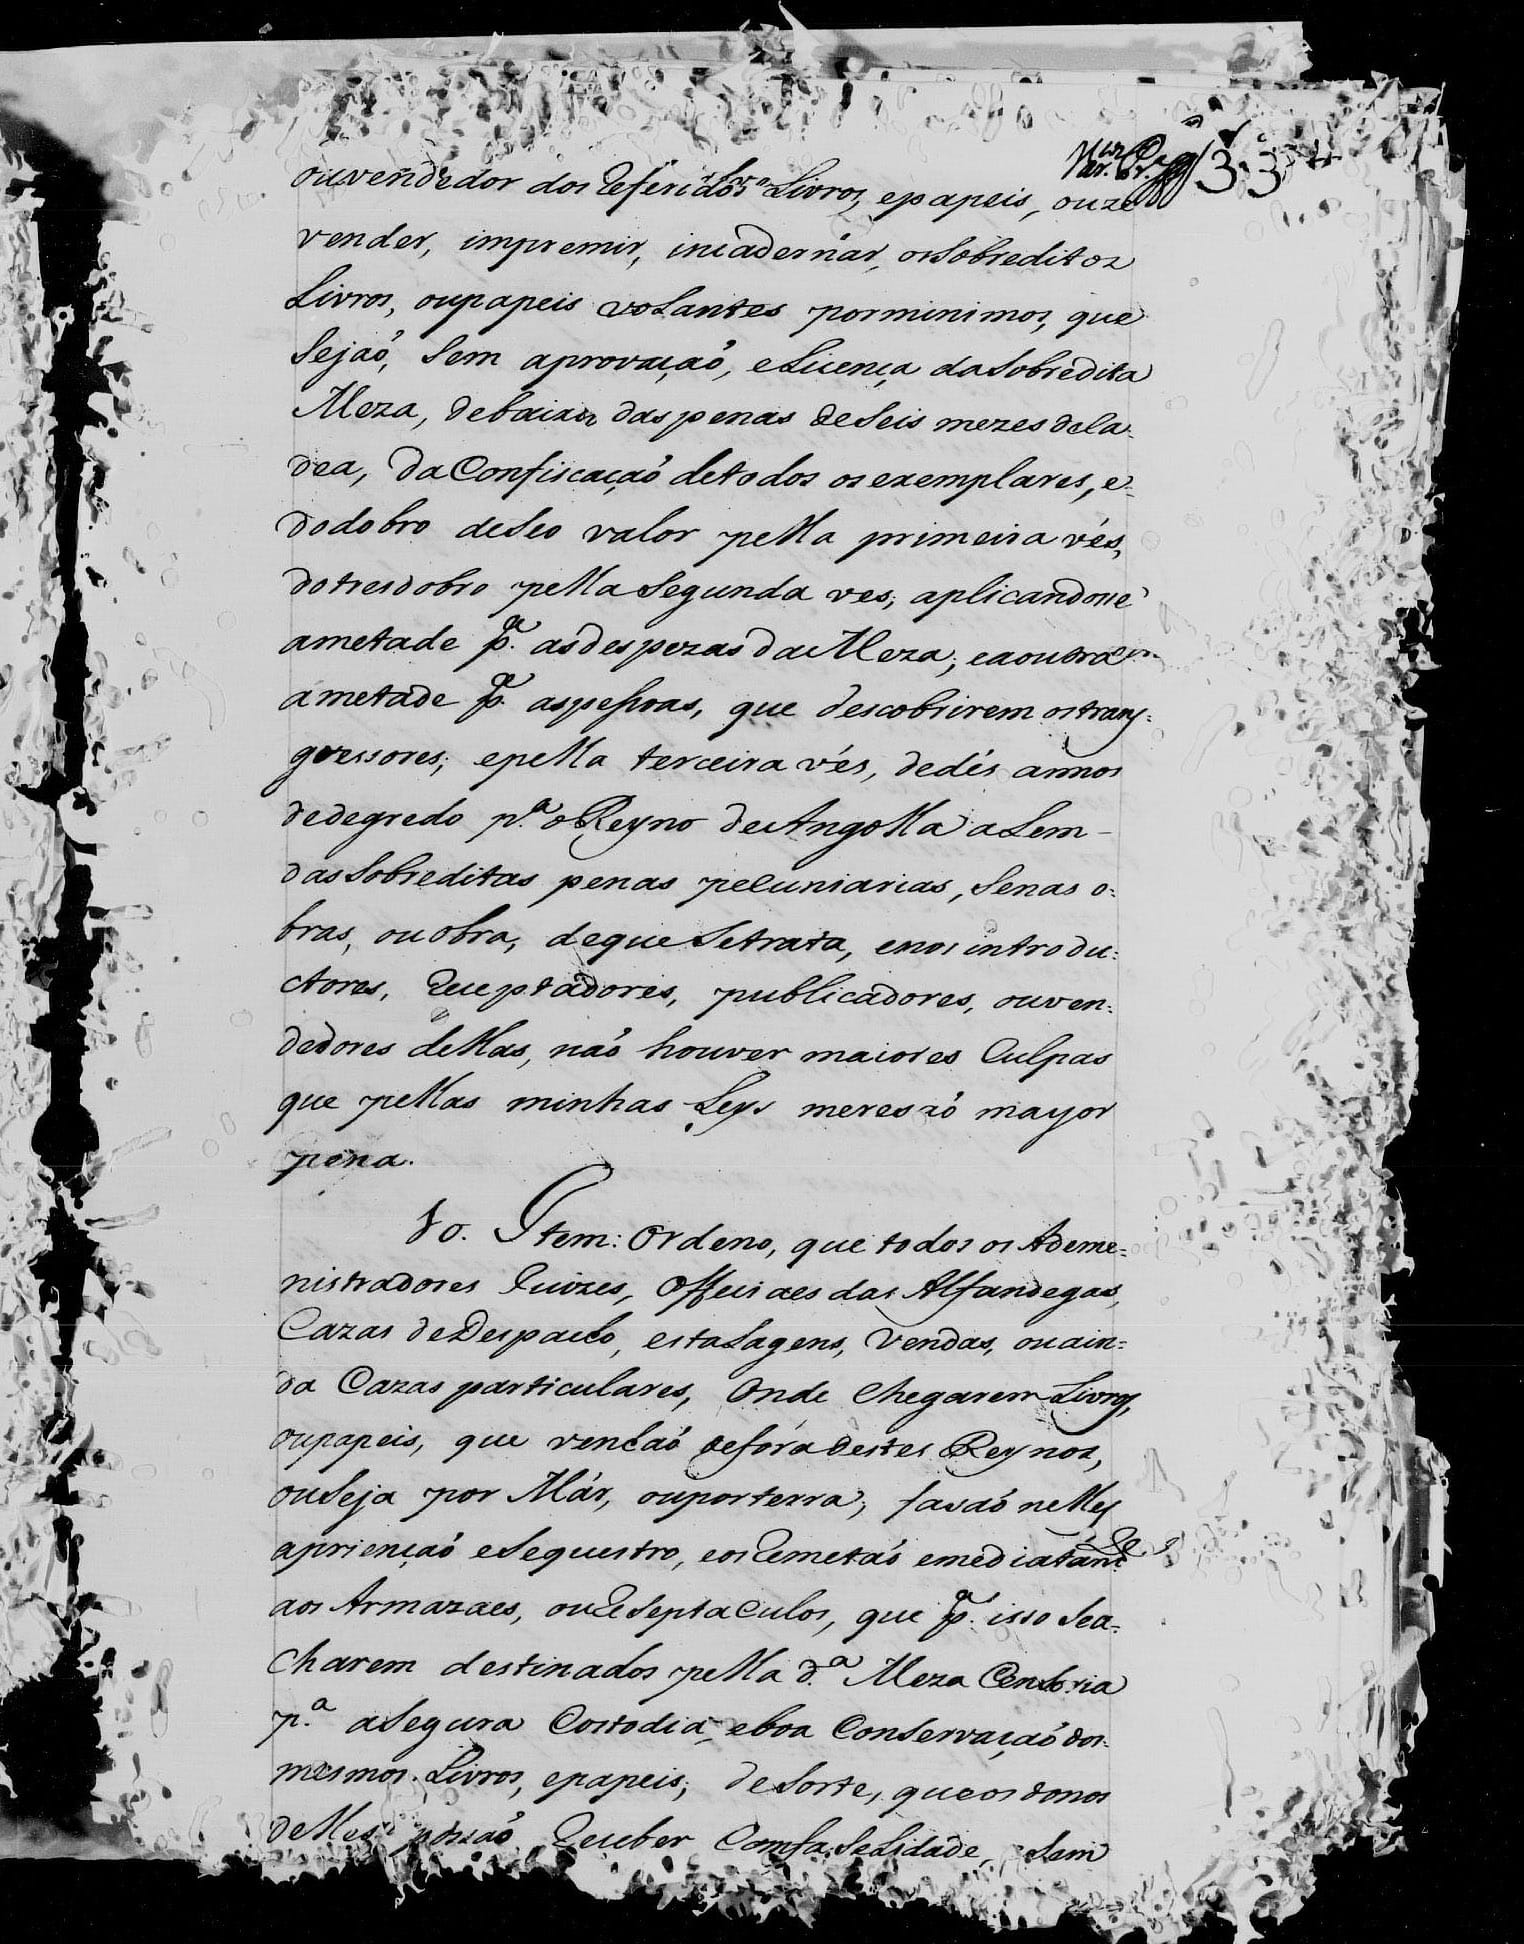 133
ouvendedor dos Referidos Livros, epapeis, ouze
vender, impremir, incadernar, osSobreditos
Livros, oupapeis volantes porminimos, que
Sejaõ, Sem aprovaçaõ, eLicença daSobredita
Meza, debaixo das penas deSeis mezes deca-
dea, da Confiscaçaõ detodos os exemplares, e-
dodobro deSeo valor pella primeira vés,
dotresdobro pella Segunda ves; aplicandosse
ametade p.ª asdespezas da Meza; eaoutra
ametade p.ª aspessoas, que descobrirem ostrans:
gressores; epella terceira vés, dedés annos
dedegredo p.ª o Reyno de Angolla aLem-
das Sobreditas penas pecuniarias, Senas o:
bras, ou obra, deque Setrata, enos introdu:
ctores, Receptadores, publicadores, ouven:
dedores dellas, naõ houver maiores Culpas
que pellas minhas Leys meressaõ mayor
pena.
10. Item: Ordeno, que todos os Ademe:
nistradores Juizes, Officiaes das Alfandegas,
Cazas deDespacho, estaLagens, Vendas, ouain:
da Cazas particulares, Onde Chegarem Livros,
oupapeis, que venhaõ defóra destes Reynos,
ouSeja por Már, ouporterra; façaõ nelles
apriençaõ eSequestro, eos Remetaõ emediatam.te
aos Armazaes, ou ReSeptaculos, que p.ª isso Sea-
Charem destinados pella d.ª Meza Censoria
p.ª aSegura Costodia, eboa Conservaçaõ dos-
mesmos Livros, epapeis; deSorte, queos donos
delles possaõ Receber Comfaselidade, Sem